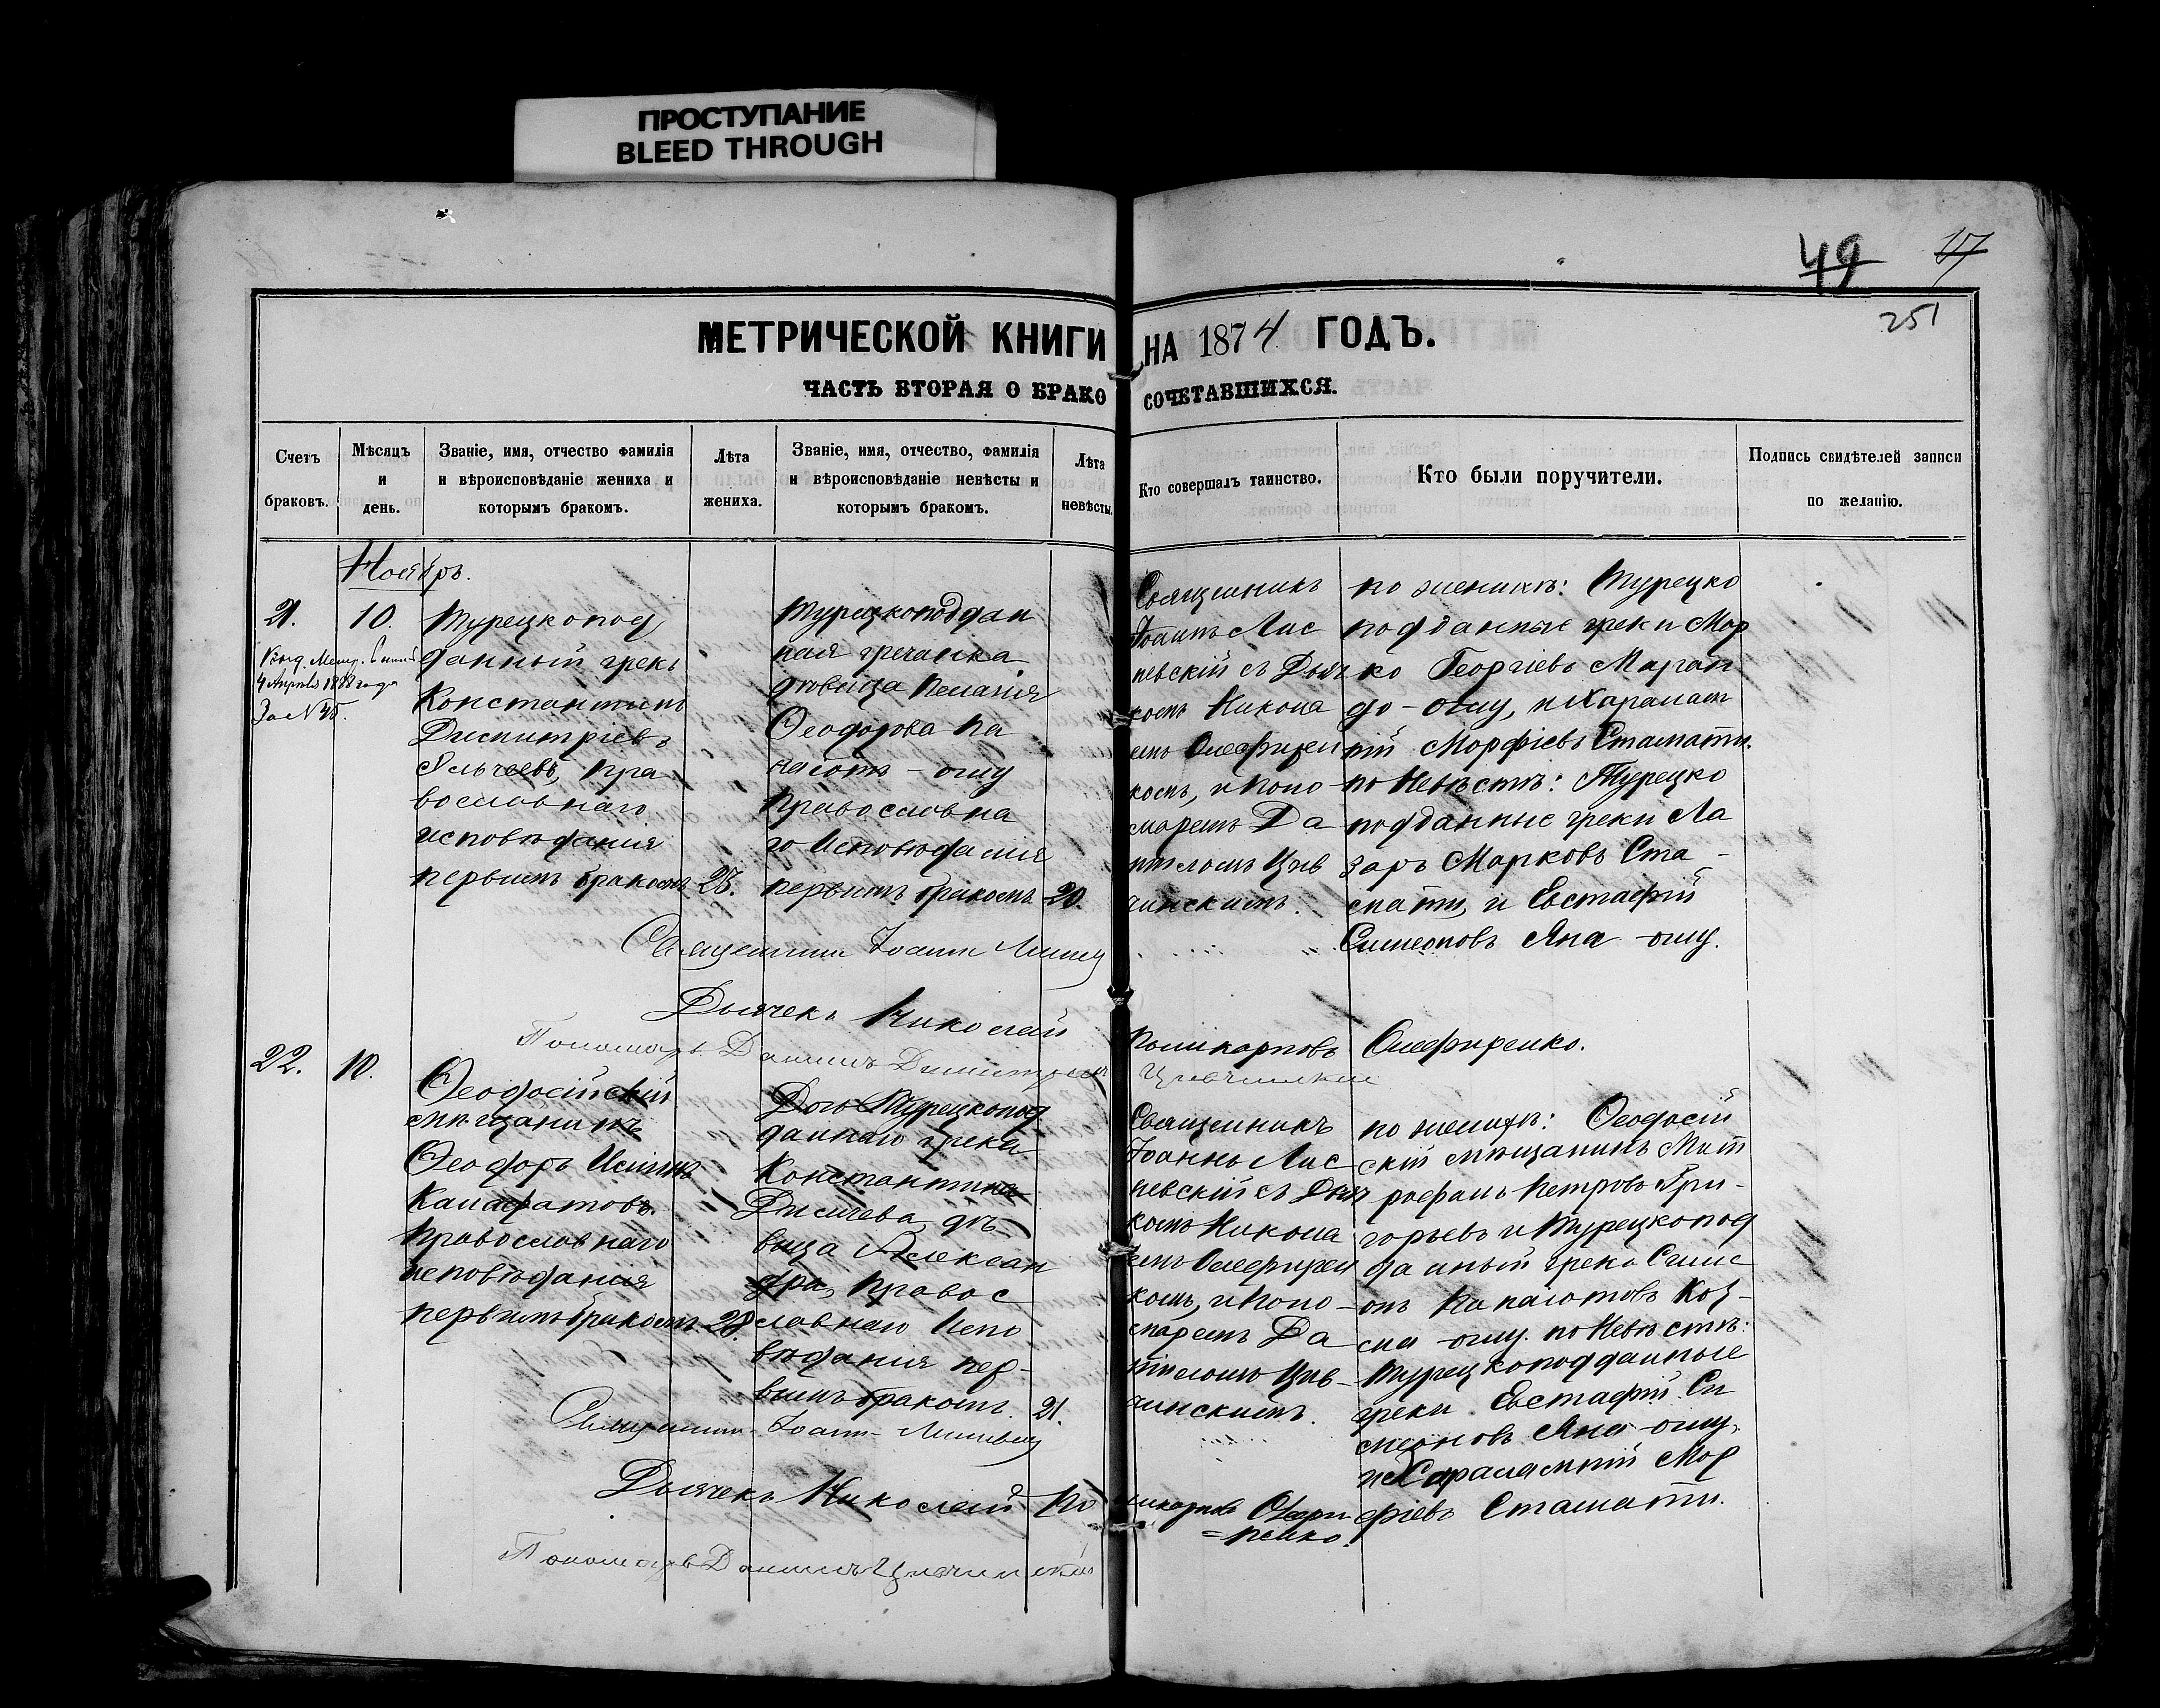 ПРОСТУПАНИЕ
BLEED THROUGH
49 17
251
МЕТРИЧЕСКОЙ КНИГИ НА 1874 ГОДЪ.
ЧАСТЬ ВТОРАЯ О БРАКОСОЧЕТАВШИХСЯ.
Счетъ браковъ.
Мѣсяцъ и день.
Званіе, имя, отчество фамилія
и вѣроисповѣданіе жениха и
которымъ бракомъ.
Лѣта жениха.
Званіе, имя, отчество, фамилія
и вѣроисповѣданіе невѣсты и
которымъ бракомъ.
Лѣта невѣсты.
Кто совершалъ таинство.
Кто были поручители.
Подпись свидѣтелей записи
по желанію.
Ноябрь.
21.
4 Апрѣля 1888 года
За № 45.
10.
Турецкопод
данный грекъ
Константинъ
Димитріевъ
пра
вославнаго
исповѣданія
первымъ бракомъ
Турецкоподдан
ная гречанка
дѣвица Пелагія
Ѳеодорова Па
наіотъ-оглу
Православна
го Исповѣданія
первымъ бракомъ
20.
Священникъ
Іоаннъ Лис
невскій съ Дьяч
комъ Никола
емъ Олефирен
комъ, и Поно
маремъ Да
ніиломъ Цив
чинскимъ.
по женихѣ: Турецко
подданные греки Мар
ко Георгіевъ Маран
до-оглу, и Харалам
пій Морфіевъ Стамати.
по Невѣстѣ: Турецко
подданные греки Ла
зарь Марковъ Ста-
мати, и Евстафій
Симеоновъ Яна-оглу.
Священникъ Іоаннъ
Дьячекъ Николай Поликарповъ Олефиренко.
Пономарь Даніилъ Димитріевъ Цивчинскій
22.
10.
Ѳеодосійскій
мѣщанинъ
Ѳеодоръ
Православнаго
исповѣданія
первымъ бракомъ
28.
Дочь Турецкопод
даннаго грека
Константина
дѣ
вица Алексан
дра, Правос
лавнаго Испо
вѣданія пер-
вымъ бракомъ.
21.
Священникъ
Іоаннъ Лис
невскій съ Дьяч
комъ Никола
емъ Олефирен
комъ, и Поно-
маремъ Да
ніиломъ Цив-
чинскимъ.
по женихѣ: Ѳеодосій
скій мѣщанинъ Мит
рофанъ Петровъ Гри-
горьевъ и Турецкопод
данный грекъ Симе
онъ Панаіотовъ Коз-
ма-оглу. по Невѣстѣ:
Турецкоподданные
греки Евстафій Си
меоновъ Яна-оглу,
и Харалампій Мор
фіевъ Стамати.
Священникъ Іоаннъ
Дьячекъ Николай Поликарповъ Олефи
=ренко.
Пономарь Даніилъ Цивчинскій